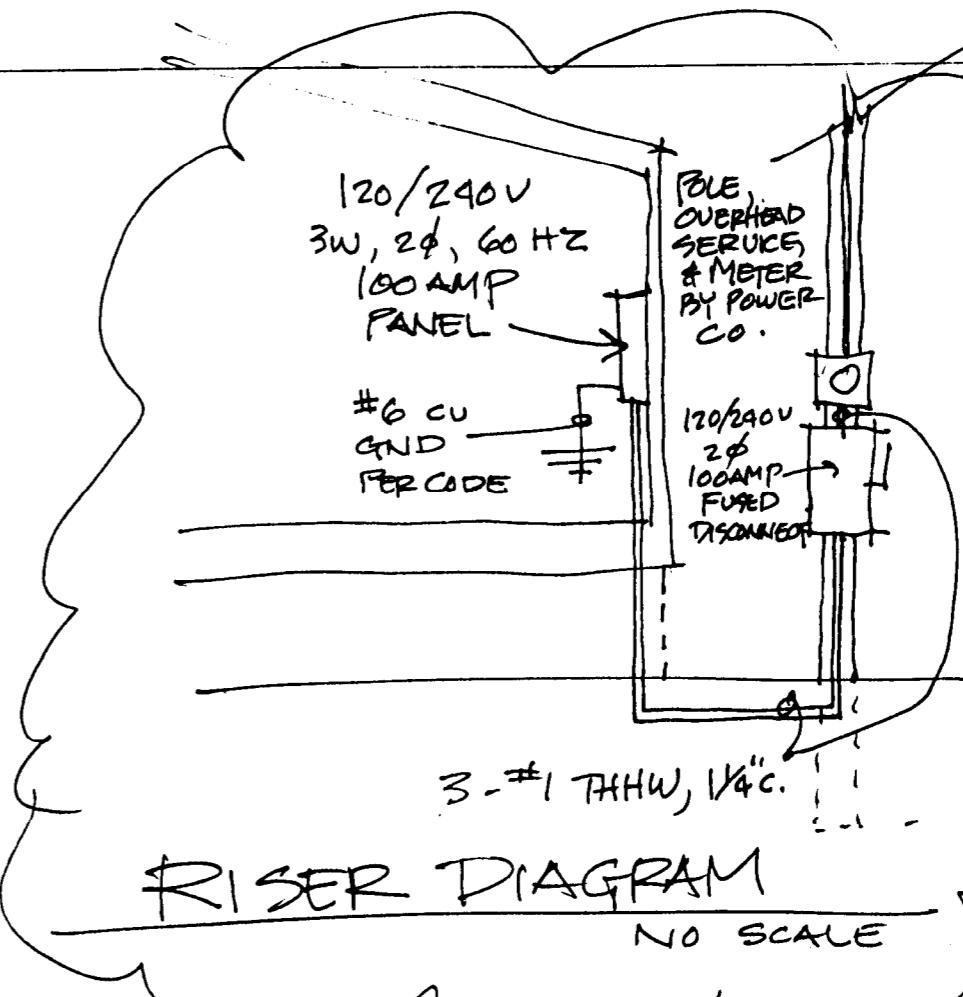 120/240V
3W, 2φ, 60 HZ
100 AMP
PANEL
#6 CU
GND
PER CODE
POLE,
OVERHEAD
SERVICE,
& METER
BY POWER
CO.
120/240V
2φ
100AMP
FUSED
DISCONNECT
3-#1 THHW, 1¼"C.
RISER DIAGRAM
NO SCALE